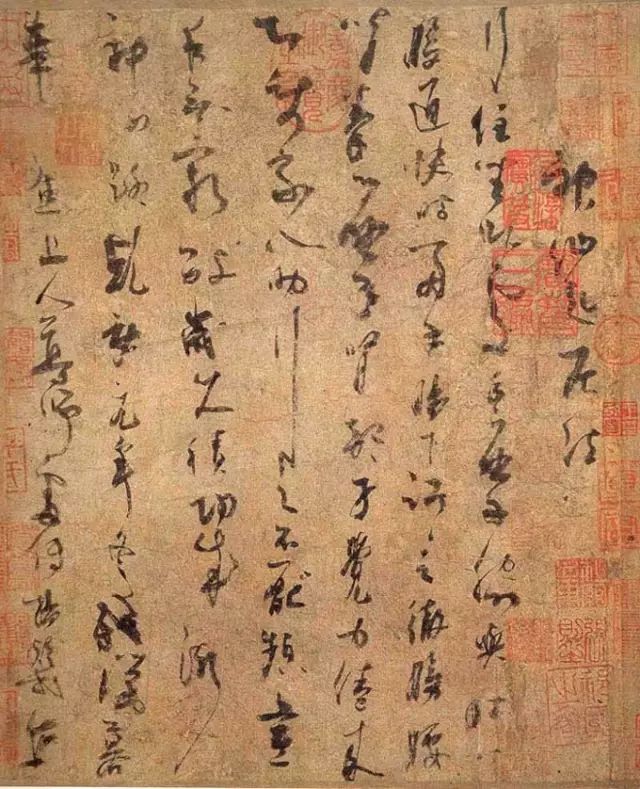 神仙起居法
行住坐臥處手摩脅與肚心
腹通快時兩手腸下踞踞之徹膀腰
背拳摩腎部才覺力倦來
即使家人助行之不厭頻晝
夜無窮數歲久積功成漸入
神仙路乾祐元年冬殘臘暮
華陽焦上人尊師處傳楊凝式